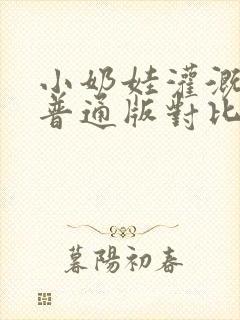 小奶娃灌溉
普通版對比
暮陽初春